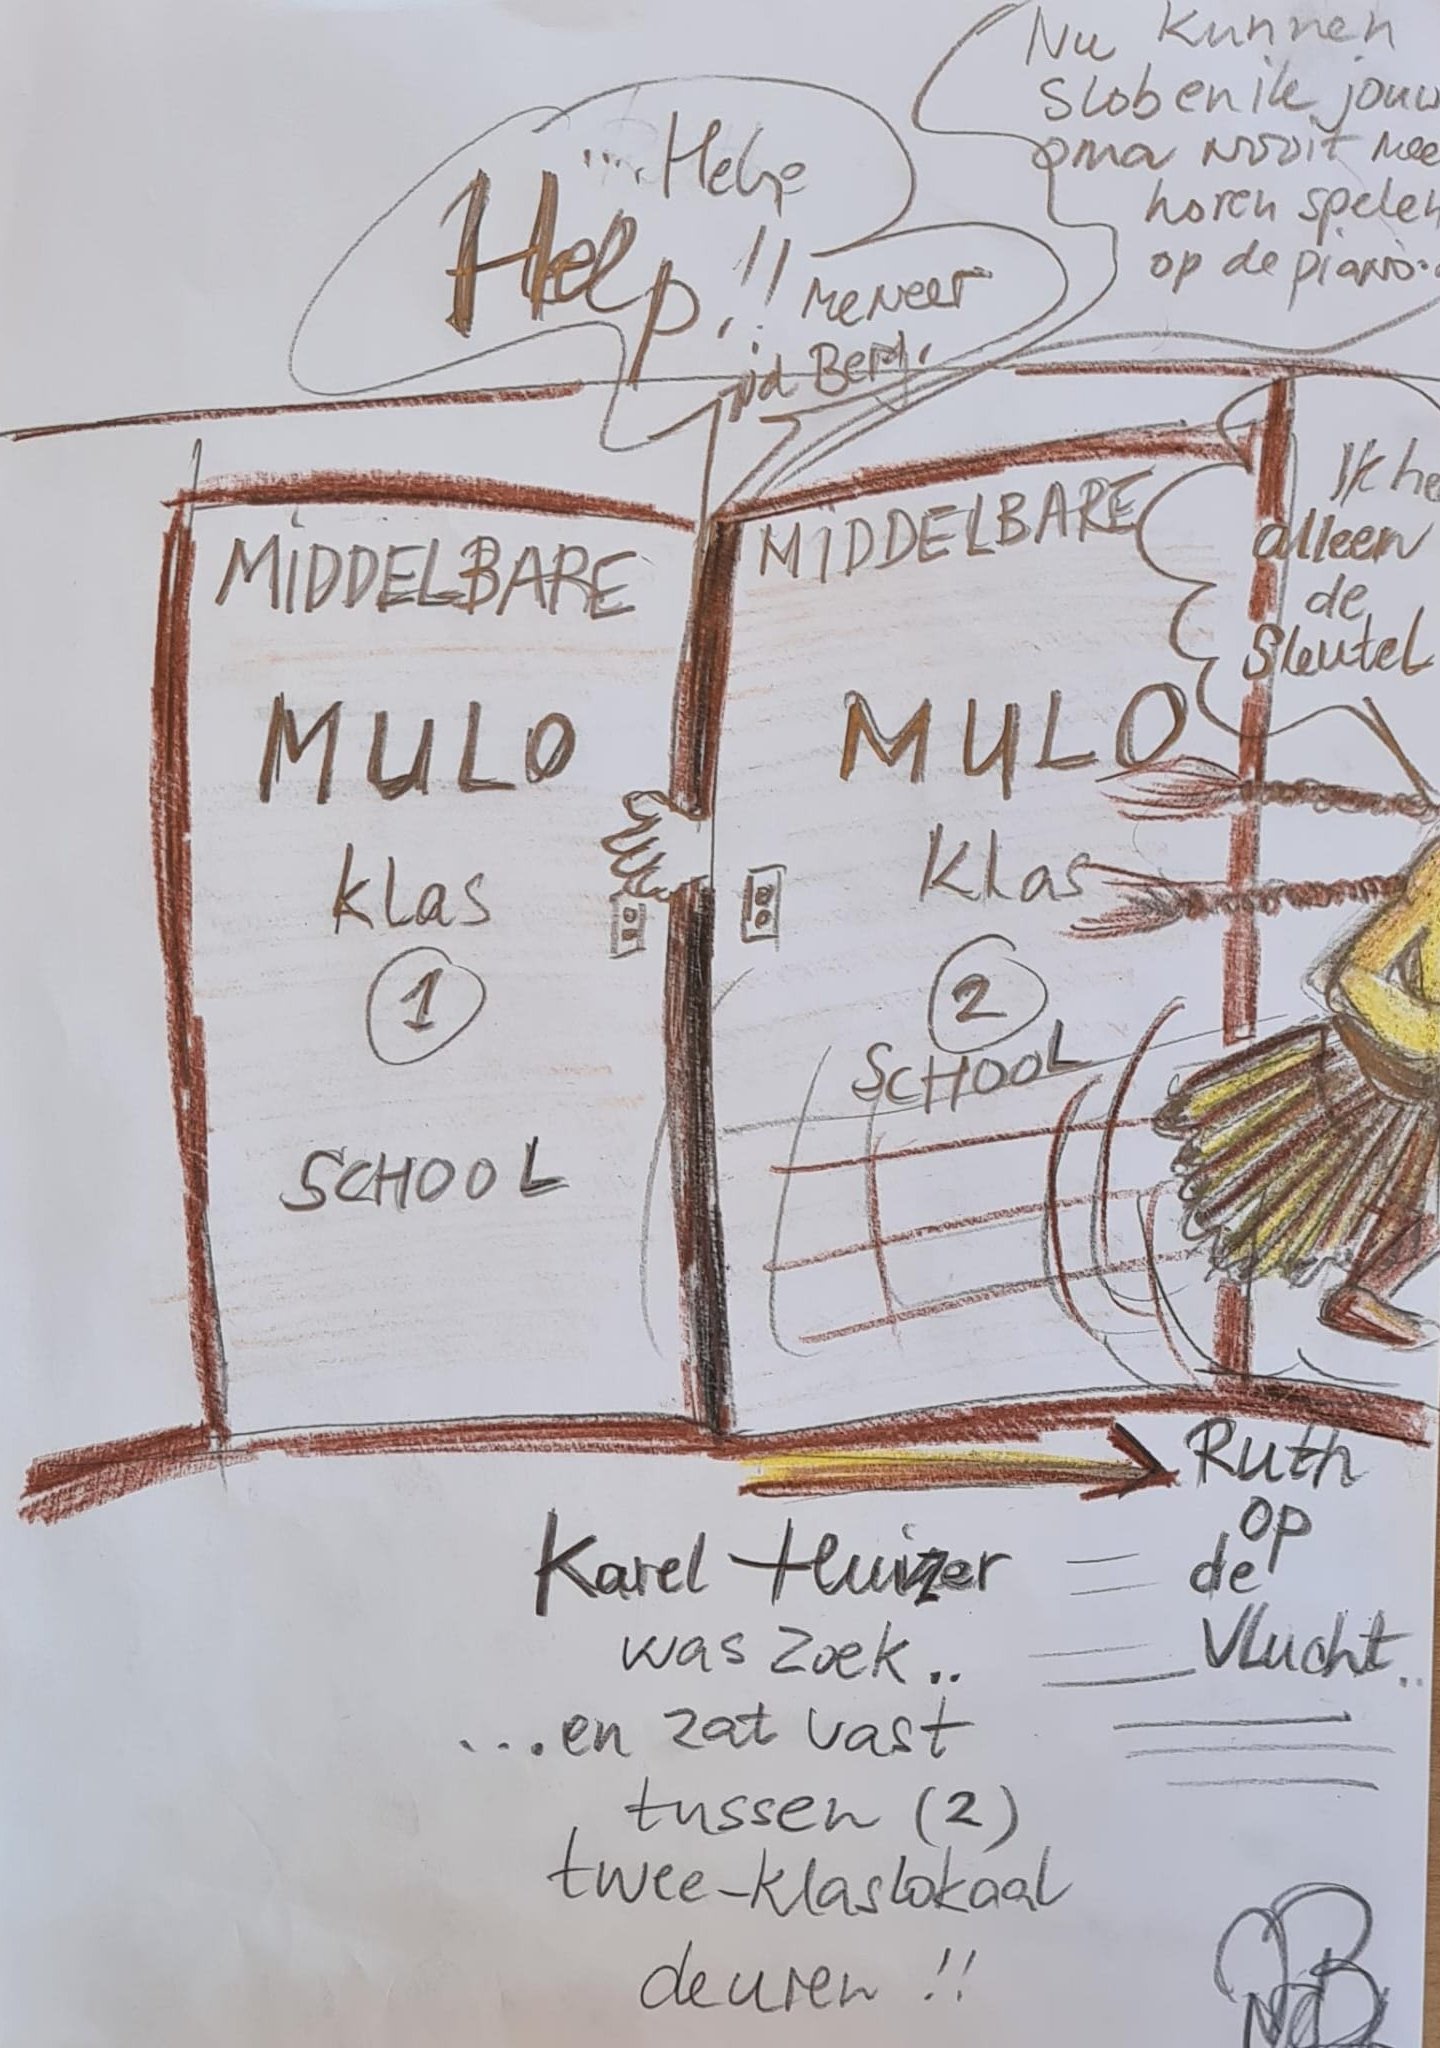 Nu kunnen
Slob en ik jouw
oma nooit mee
horen spelen
op de piano
... Help
Help!!
Meneer
vd Berg.
Ik he
alleen
de
Sleutel
MIDDELBARE
MULO
klas
1
SCHOOL
MIDDELBARE
MULO
klas
2
SCHOOL
Ruth
op
de
Vlucht..
Karel Huizer
was zoek..
...en zat vast
tussen (2)
twee-klaslokaal
deuren !!